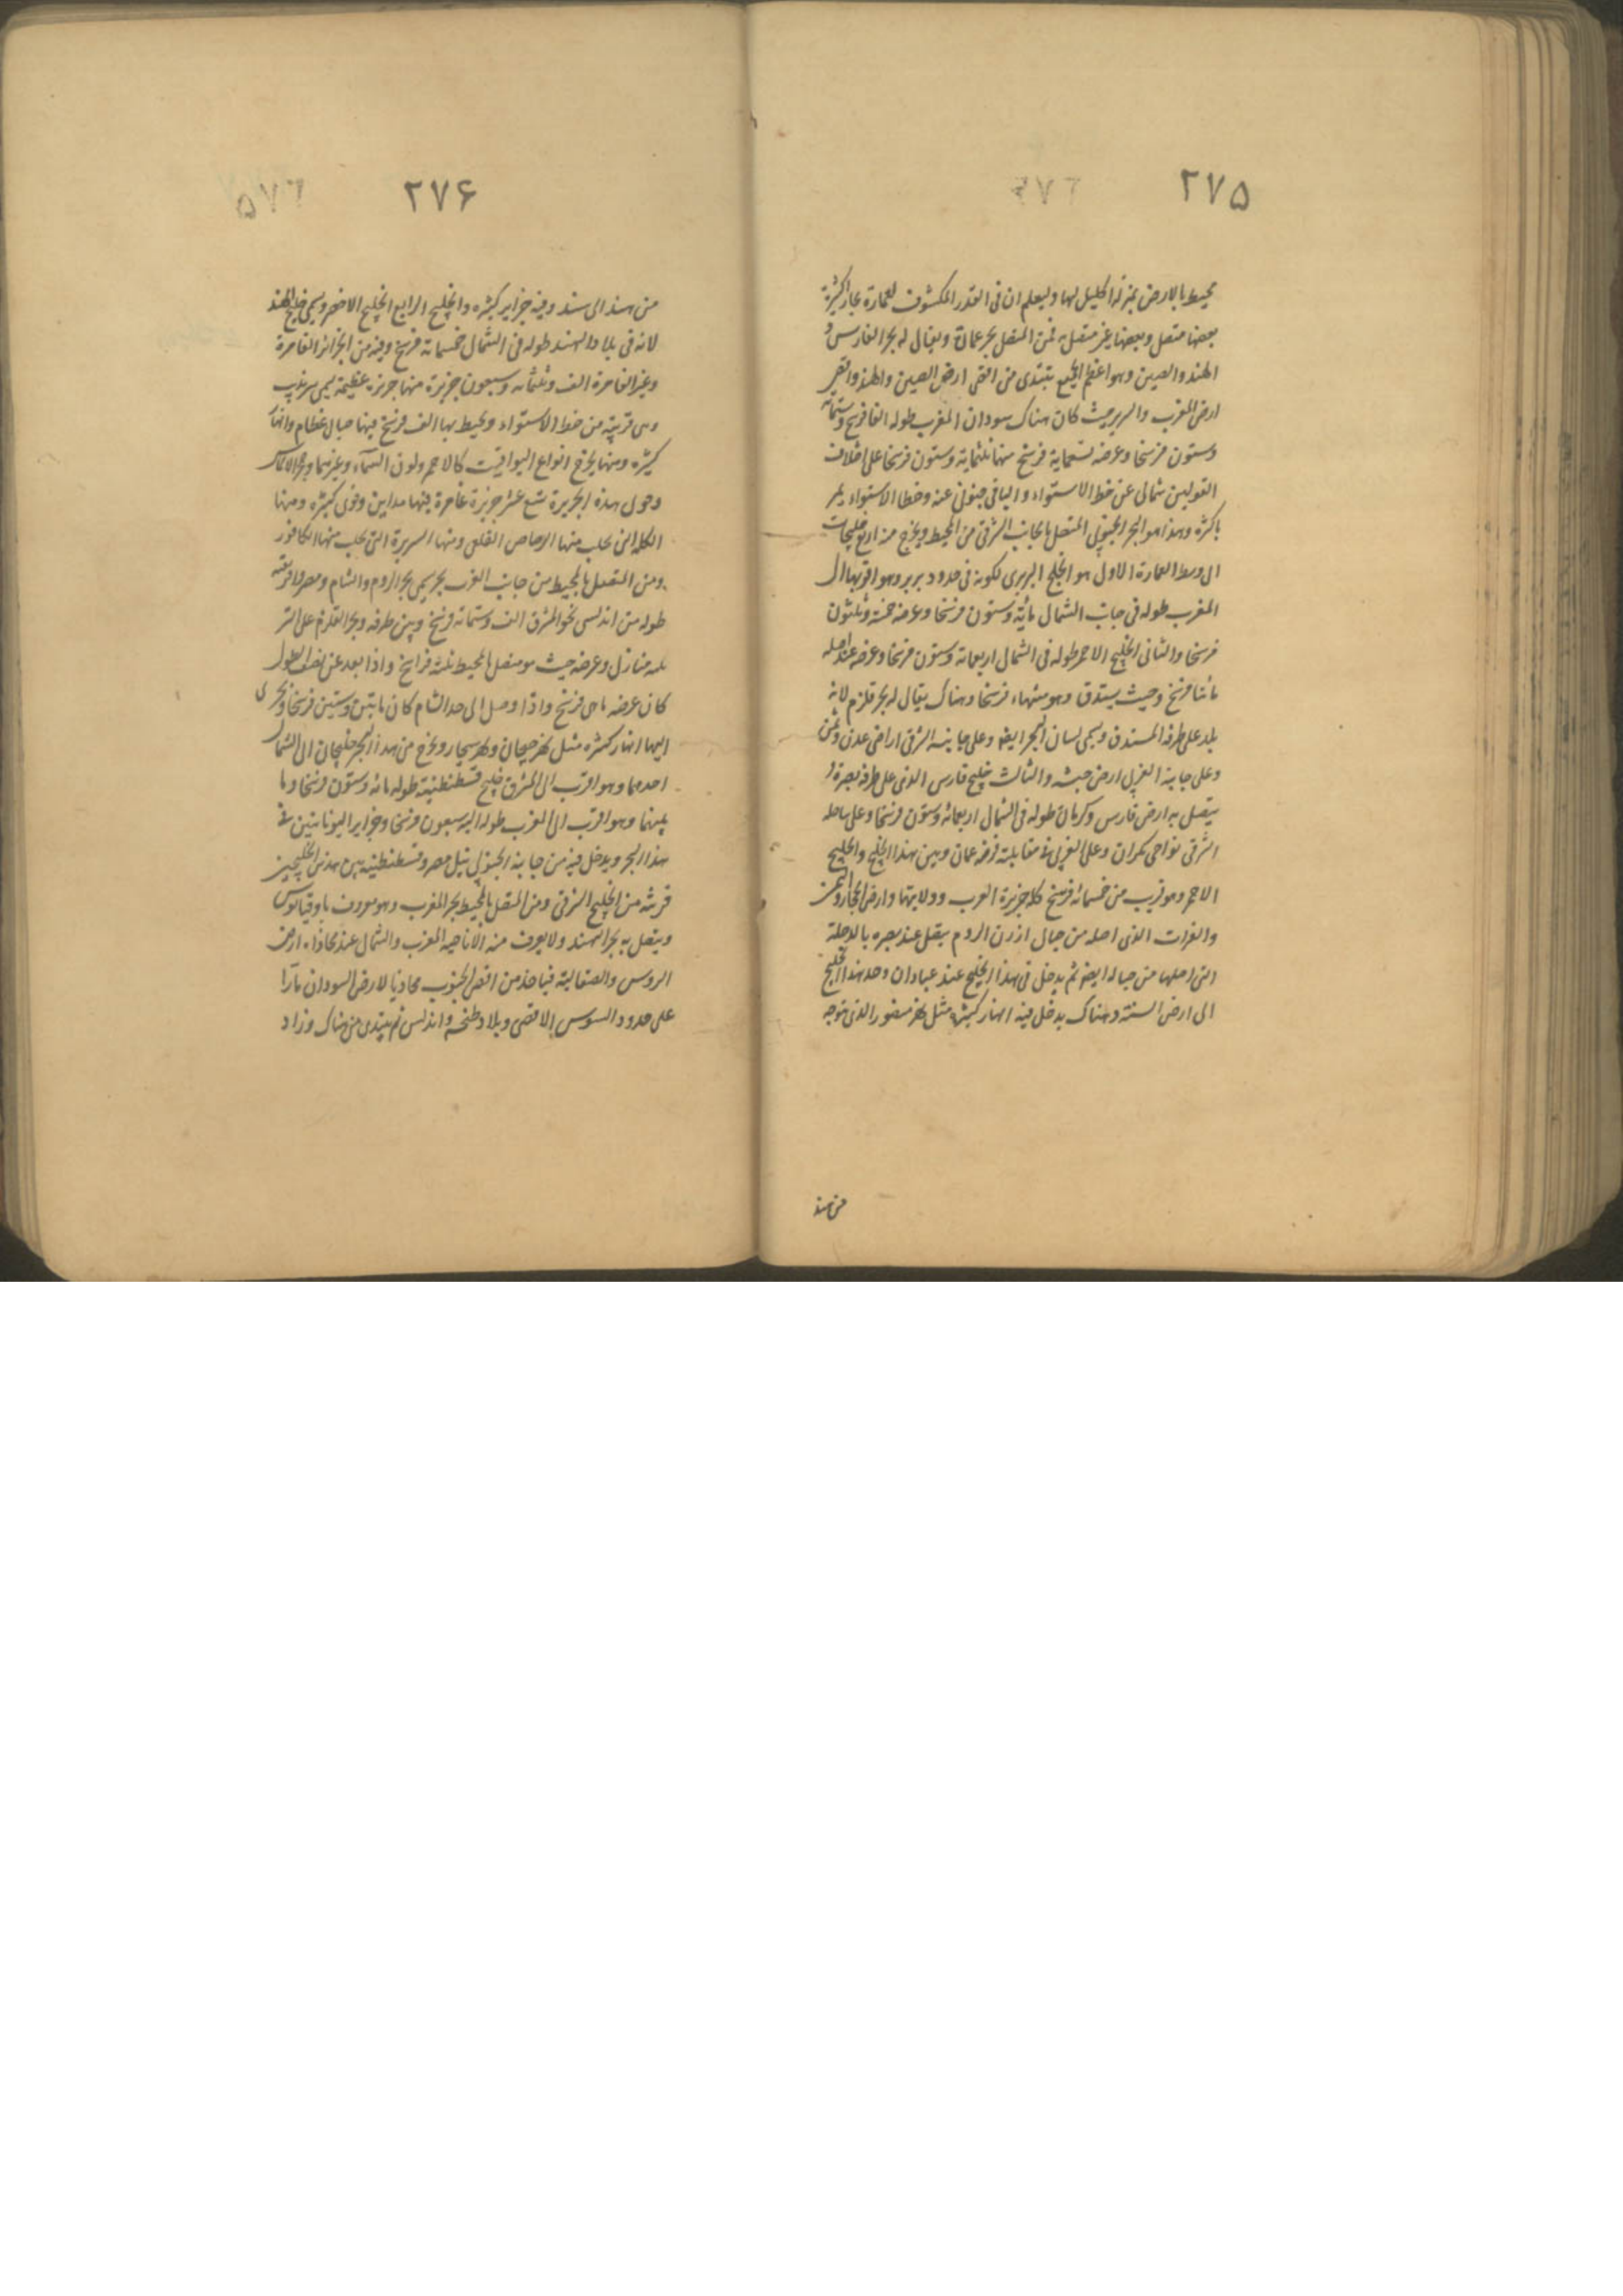 ۲۷۵
محيط بالارض بمنزلة اكليل لها وليعلم ان فى القدر المكشوف للعمارة بحار كثيرة
بعضها متصل وبعضها غير متصل به فمن المتصل بحر عمان ويقال له بحر الفارس و
الهند والصين وهو اعظم الجميع تبتدى من اقصى ارض الصين والهند واقصى
ارض المغرب والبربر حيث كان هناك سودان المغرب طوله الفا فرسخ وستمائة
وستون فرسخا وعرضه تسعماية فرسخ منها ثلثماية وستون فرسخا على اختلاف
القولين شمالى عن خط الاستواء والباقى جنوبى عنه وخط الاستواء يمر
باكثره وهذا هو البحر الجنوبى المتصل بالجانب الشرقى من المحيط ويخرج منه اربع خليجات
الى وسط العمارة الاول هو الخليج البربرى لكونه فى حدود بربر وهو اقربها الى
المغرب طوله فى جانب الشمال مأية وستون فرسخا وعرضه خمسة وثلثون
فرسخا والثانى الخليج الاحمر طوله فى الشمال اربعمائة وستون فرسخا وعرضه عند اصله
مأتا فرسخ وحيث يستدق وهو منتهاه فرسخا وهناك يقال له بحر قلزم لانه
بلد على طرفه المستدق ويسمى لسان البحر ايضا وعلى جانبه الشرقى اراضى عدن ويمن
وعلى جانبه الغربى ارض حبشه والثالث خليج فارس الذى على طرفه بصرة و
يتصل به ارض فارس وكرمان طوله فى الشمال اربعمائة وستون فرسخا وعلى ساحله
الشرقى نواحى مكران وعلى الغربى فى مقابلته فرضه عمان وبين هذا الخليج والخليج
الاحمر وهو قريب من خمسمائة فرسخ كله جزيرة العرب وولايتها وارض الحجاز واليمن
والفرات الذى اصله من جبال ارزن الروم يتصل عند بصره بالدجلة
التى اصلها من جباله ايضا ثم يدخل فى هذا الخليج عند عبادان وحد هذا الخليج
الى ارض السند وهناك يدخل فيه انهار كثيرة مثل نهر منصور الذى يتوجه
من هند
۲۷۶
من هند الى سند وفيه جزاير كثيره والخليج الرابع الخليج الاخضر ويسمى خليج الهند
لانه فى بلاد الهند طوله فى الشمال خمسمائة فرسخ وفيه من الجزائر العامرة
وغير العامرة الف وثلثمائه وسبعون جزيرة منها جزيرة عظيمة يسمى سرنديب
وهى قريبة من خط الاستواء ويحيط بها الف فرسخ فيها جبال عظام وانهار
كثيره ومنها يخرج انواع اليواقيت كالاحمر ولون السماء وغيرهما وحجر الالماس
وحول هذه الجزيرة تسع عشر جزيرة عامرة فيها مداين وقرى كثيره ومنها
الكله التى يجلب منها الرصاص القلعى ومنها السريرة التى يجلب منها الكافور
ومن المتصل بالمحيط من جانب الغرب بحر يسمى بحر الروم والشام ومصر وافريقيه
طوله من اندلس نحو المشرق الف وستمائه فرسخ وبين طرفه وبحر القلزم على البر
ثلثه منازل وعرضه حيث هو متصل بالمحيط ثلثة فراسخ واذا بعد عن نصف الطول
كان عرضه مائى فرسخ واذا وصل الى حد الشام كان مائتين وستين فرسخا ويجرى
اليها انهار كثيره مثل نهر جيحان ونهر سيحان ويخرج من هذا البحر خليجان الى الشمال
احدهما وهو اقرب الى المشرق خليج قسطنطنية طوله مائه وستون فرسخا و
بينهما وهو اقرب الى المغرب طوله سبعون فرسخا وجزاير اليونانيين فى
هذا البحر ويدخل فيه من جانبه الجنوبى نيل مصر وقسطنطنيه بين هذين الخليجين
قريبه من الخليج الشرقى ومن المتصل بالمحيط بحر المغرب وهو معروف باوقيانوس
ويتصل به بحر الهند ولا يعرف منه الا ناحيه المغرب والشمال عند محاذاه ارض
الروس والصقالبة فياخذ من اقصى الجنوب محاذيا لارض السودان مارا
على حدود السوس الاقصى وبلاد طنجه واندلس ثم يبتدى من هناك وراء